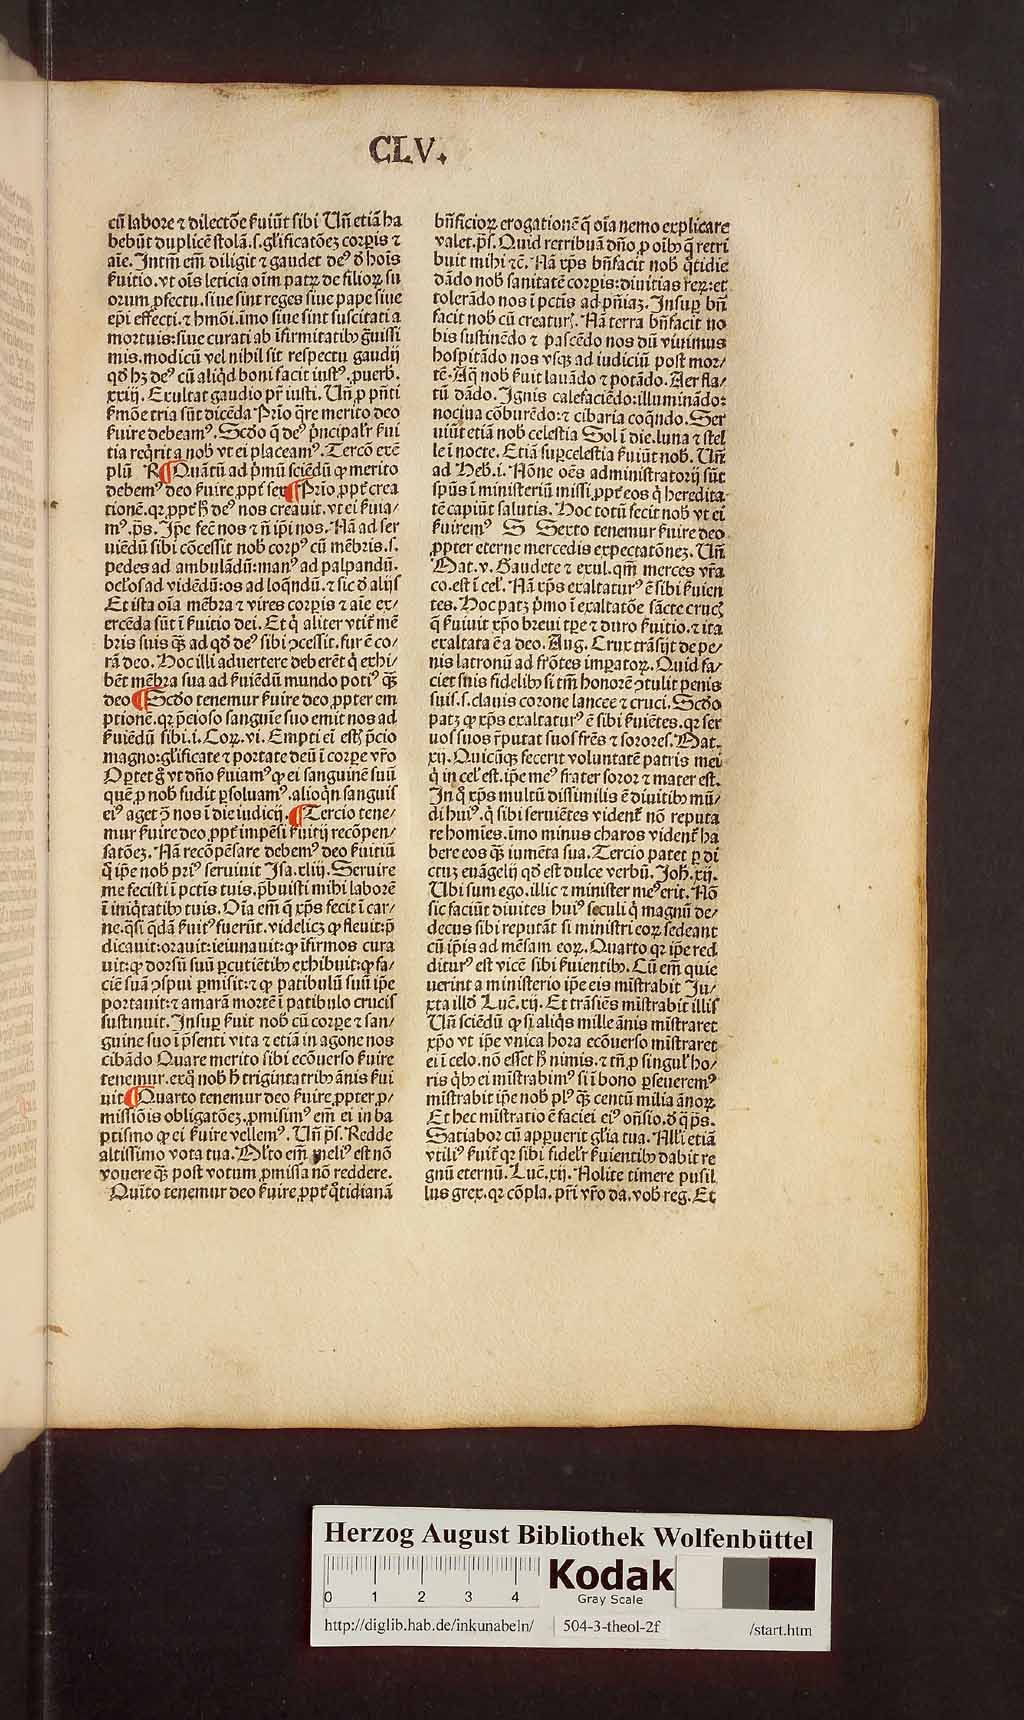 CLV.
cū labore ⁊ dilectōe ẜuiūt sibi Uñ etiā ha
bebūt duplicē stolā.ſ.gl̄ificatōeꝫ corꝑis ⁊
aīe. Intm̄ em̄ diligit ⁊ gaudet deꝰ ō hoīs
ẜuitio.vt oīs leticia oīm patꝝ de filioꝝ su
orum ꝓfectu.siue sint reges siue pape siue
epī effecti.⁊ hmōi.īmo siue sint suscitati a
mortuis:siue curati ab īfirmitatibꝰ g̃uissi
mis.modicū vel nihil sit respectu gaudij
qd̄ hꝫ deꝰ cū aliqd̄ boni facit iustꝰ.ꝓuerb.
xxiij. Exultat gaudio pr̄ iusti. Uñ ꝓ pn̄ti
ẜmōe tria sūt dicēda Prīo q̄re merito deo
ẜuire debeamꝰ. Scd̄o q̄ deꝰ pⁱncipalr̄ ẜui
tia req̄rit a nob̄ vt ei placeamꝰ. Tercō exē
plū ¶ Quātū ad pⁱmū sciēdū ꝙ merito
debemꝰ deo ẜuire ꝓpt̄ sex ¶ Prīo ꝓpt̄ crea
tionē.qꝛ ꝓpt̄ h̄ deꝰ nos creauit.vt ei ẜuia/
mꝰ.ps̄. Ip̄e fec̄ nos ⁊ n̄ ip̄i nos. Nā ad ser
uiēdū sibi cōcessit nob̄ corpꝰ cū mēbris.ſ.
pedes ad ambulādū:manꝰ ad palpandū.
ocl̓os ad vidēdū:os ad loq̄ndū.⁊ sic ō alijs
Et ista oīa mēbra ⁊ vires corꝑis ⁊ aīe ex/
ercēda sūt ī ẜuitio dei. Et qⁱ aliter vtit̄ mē
bris suis qᷓꝫ ad qd̄ deꝰ sibi ↄcessit.fur ē co/
rā deo. Hoc illi aduertere deberēt qⁱ exhi/
bēt mēbra sua ad ẜuiēdū mundo potiꝰ qᷓꝫ
deo ¶ Scd̄o tenemur ẜuire deo.ꝓpter em
ptionē.qꝛ p̄cioso sanguīe suo emit nos ad
ẜuiēdū sibi.i. Coꝝ.vi. Empti eī estꝭ p̄cio
magno:gl̄ificate ⁊ portate deū ī corꝑe vr̄o
Oꝑtet g̊ vt dn̄o ẜuiamꝰ ꝙ ei sanguinē suū
quē ꝓ nob̄ fudit ꝑsoluamꝰ.alioqⁱn sanguis
eiꝰ aget ↄ̄ nos ī die iudicij. ¶ Tercio tene/
mur ẜuire deo ꝓpt̄ impēsi ẜuitij recōpen/
satōeꝫ. Nā recōpēsare debemꝰ deo ẜuitiū
qͦ ip̄e nob̄ priꝰ seruiuit Isa.xliij. Seruire
me fecisti ī pctīs tuis.p̄buisti mihi laborē
ī iniqⁱtatibꝰ tuis. Oīa em̄ q̄ xp̄s fecit ī car/
ne.qͣsi qͣdā ẜuitꝰ fuerūt.videlicꝫ ꝙ fleuit:p̄
dicauit:orauit:ieiunauit:ꝙ īfirmos cura
uit:ꝙ dorsū suū ꝑcutiētibꝰ exhibuit:ꝙ fa/
ciē suā ↄspui ꝑmisit:⁊ ꝙ patibulū suū ip̄e
portauit:⁊ amarā mortē ī patibulo crucis
sustinuit. Insuꝑ ẜuit nob̄ cū corꝑe ⁊ san/
guine suo ī p̄senti vita ⁊ etiā in agone nos
cibādo Quare merito sibi ecōuerso ẜuire
tenemur.exqͦ nob̄ h̄ triginta tribꝰ ānis ẜui
uit ¶ Quarto tenemur deo ẜuire.ꝓpter ꝓ/
missiōis obligatōeꝫ.ꝓmisimꝰ em̄ ei in ba
ptismo ꝙ ei ẜuire vellemꝰ. Uñ ps̄. Redde
altissimo vota tua. Mlt̄o em̄ meliꝰ est nō
vouere qᷓꝫ post votum ꝓmissa nō reddere.
Quīto tenemur deo ẜuire.ꝓpt̄ qͦtidianā
bn̄ficioꝝ erogationē q̄ oīa nemo explicare
valet.ps̄. Quid retribuā dn̄o ꝓ oībꝰ q̄ retri
buit mihi ⁊c̄. Nā xp̄s bn̄facit nob̄ qͦtidie
dādo nob̄ sanitatē corꝑis:diuitias reꝝ:et
tolerādo nos ī pctīs ad pn̄iaꝫ. Insuꝑ bn̄
facit nob̄ cū creaturꝭ. Nā terra bn̄facit no
bis sustinēdo ⁊ pascēdo nos dū viuimus
hospitādo nos vsqꝫ ad iudiciū post mor/
tē. Aq̄ nob̄ ẜuit lauādo ⁊ potādo. Aer fla/
tū dādo. Ignis calefaciēdo:illuminādo:
nociua cōburēdo:⁊ cibaria coqⁿdo. Ser
uiūt etiā nob̄ celestia Sol ī die.luna ⁊ stel
le ī nocte. Etiā suꝑcelestia ẜuiūt nob̄. Uñ
ad Heb̄.i. Nōne oēs administratorij sūt
spūs ī ministeriū missi ꝓpt̄ eos qⁱ heredita
tē capiūt salutis. Hoc totū fecit nob̄ vt ei
ẜuiremꝰ S Sexto tenemur ẜuire deo
ꝓpter eterne mercedis expectatōneꝫ. Uñ
Mat.v. Gaudete ⁊ exul.qm̄ merces vr̄a
co.est ī cel̓. Nā xp̄s exaltaturꝰ ē sibi ẜuien
tes. Hoc patꝫ pⁱmo ī exaltatōe sācte crucꝭ
q̄ ẜuiuit xp̄o breui tꝑe ⁊ duro ẜuitio.⁊ ita
exaltata ē a deo. Aug. Crux trāsijt de pe/
nis latronū ad frōtes imꝑatoꝝ. Quid fa/
ciet suis fidelibꝰ si tm̄ honorē ↄtulit penis
suis.ſ.clauis corone lancee ⁊ cruci. Scd̄o
patꝫ ꝙ xp̄s exaltaturꝰ ē sibi ẜuiētes.qꝛ ser
uos suos r̄putat suos frēs ⁊ sorores. Mat.
xij. Quicūqꝫ fecerit voluntatē patris mei
qⁱ in cel̓ est.ip̄e meꝰ frater soror ⁊ mater est.
In qͦ xp̄s multū dissimilis ē diuitibꝰ mū/
di huiꝰ.qⁱ sibi seruiētes vident̄ nō reputa
re homīes.īmo minus charos vident̄ ha
bere eos qᷓꝫ iumēta sua. Tercio patet ꝑ di
ctuꝫ euāgelij qd̄ est dulce verbū. Joh̄.xij.
Ubi sum ego.illic ⁊ minister meꝰ erit. Nō
sic faciūt diuites huiꝰ seculi qⁱ magnū de/
decus sibi reputāt si ministri eoꝝ sedeant
cū ip̄is ad mēsam eoꝝ. Quarto qꝛ ip̄e red
diturꝰ est vicē sibi ẜuientibꝰ. Cū em̄ quie
uerint a ministerio ip̄e eis mīstrabit Ju/
xta illd̄ Luc̄.xij. Et trāsiēs mīstrabit illis
Uñ sciēdū ꝙ si aliqⁱs mille ānis mīstraret
xp̄o vt ip̄e vnica hora ecōuerso mīstraret
ei ī celo.nō esset h̄ nimis.⁊ tn̄ ꝓ singul̓ ho/
ris qⁱbꝰ ei mīstrabimꝰ si ī bono ꝑseueremꝰ
mīstrabit ip̄e nob̄ plꝰ qᷓꝫ centū milia ānoꝝ.
Et hec mīstratio ē faciei eiꝰ on̄sio.ō q̄ ps̄.
Satiabor cū apꝑuerit gl̄ia tua. Alli etiā
vtiliꝰ ẜuit̄ qꝛ sibi fidelr̄ ẜuientibꝰ dabit re
gnū eternū. Luc̄.xij. Nolite timere pusil
lus grex.qꝛ cōpla.prī vr̄o da.vob̄ reg. Et
Herzog August Bibliothek Wolfenbüttel
0 1 2 3 4
Kodak
Gray Scale
http://diglib.hab.de/inkunabeln/ 504-3-theol-2f /start.htm